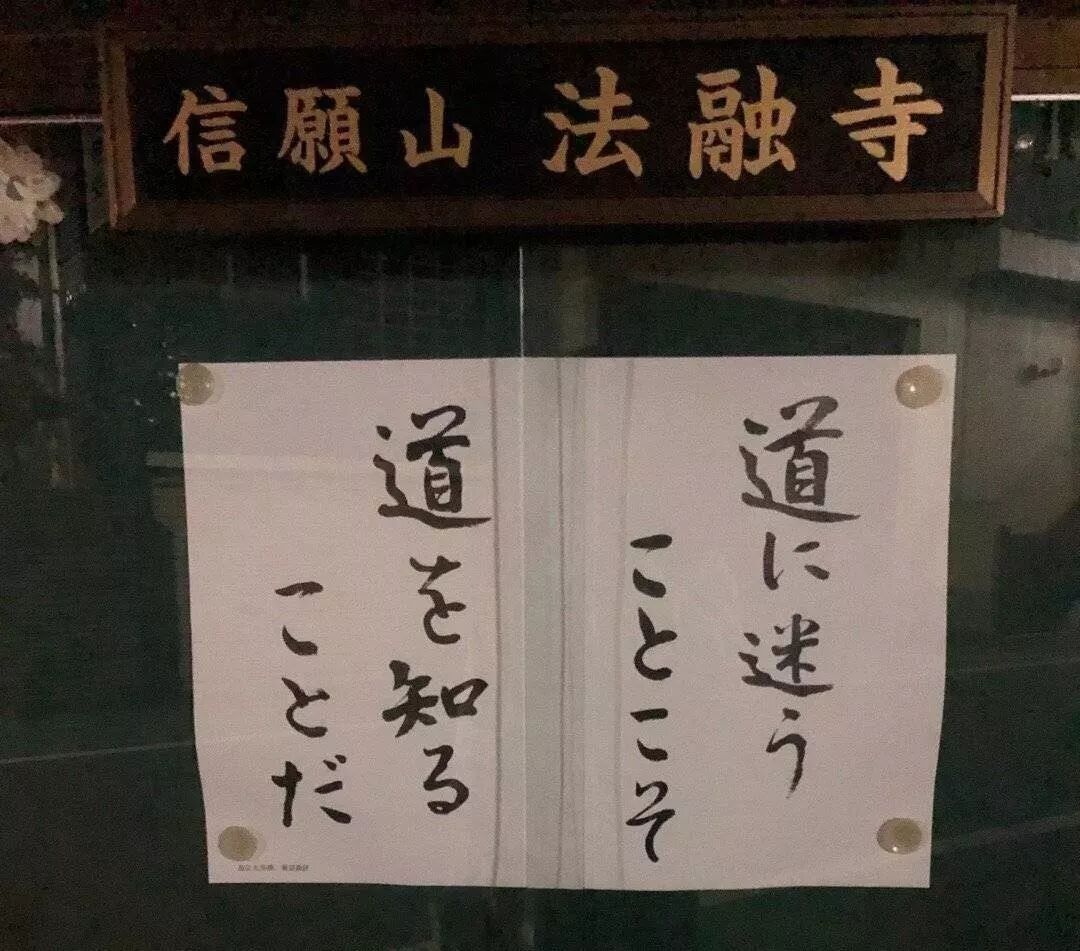 信願山 法融寺
道に迷う
ことこそ
道を知る
ことだ